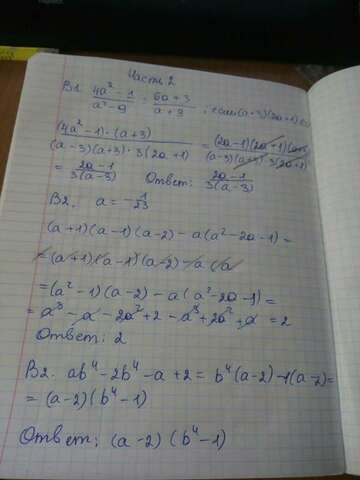 Часть 2
В1. (4a² - 1)/(a² - 9) : (6a + 3)/(a + 3); если (a+3)(2a+1)
((4a² - 1)·(a+3))/((a-3)(a+3)·3(2a+1)) = ((2a-1)(2a+1)(a+3))/((a-3)(a+3)·3(2a+1)) =
= (2a-1)/(3(a-3)) Ответ: (2a-1)/(3(a-3))
В2. a = -1/23
(a+1)(a-1)(a-2) - a(a² - 2a - 1) =
= (a+1)(a-1)(a-2) - a (a
= (a² - 1)(a-2) - a(a² - 2a - 1) =
= a³ - a - 2a² + 2 - a³ + 2a² + a = 2
Ответ: 2
В2. ab⁴ - 2b⁴ - a + 2 = b⁴(a-2) - 1(a-2) =
= (a-2)(b⁴-1)
Ответ: (a-2)(b⁴-1)